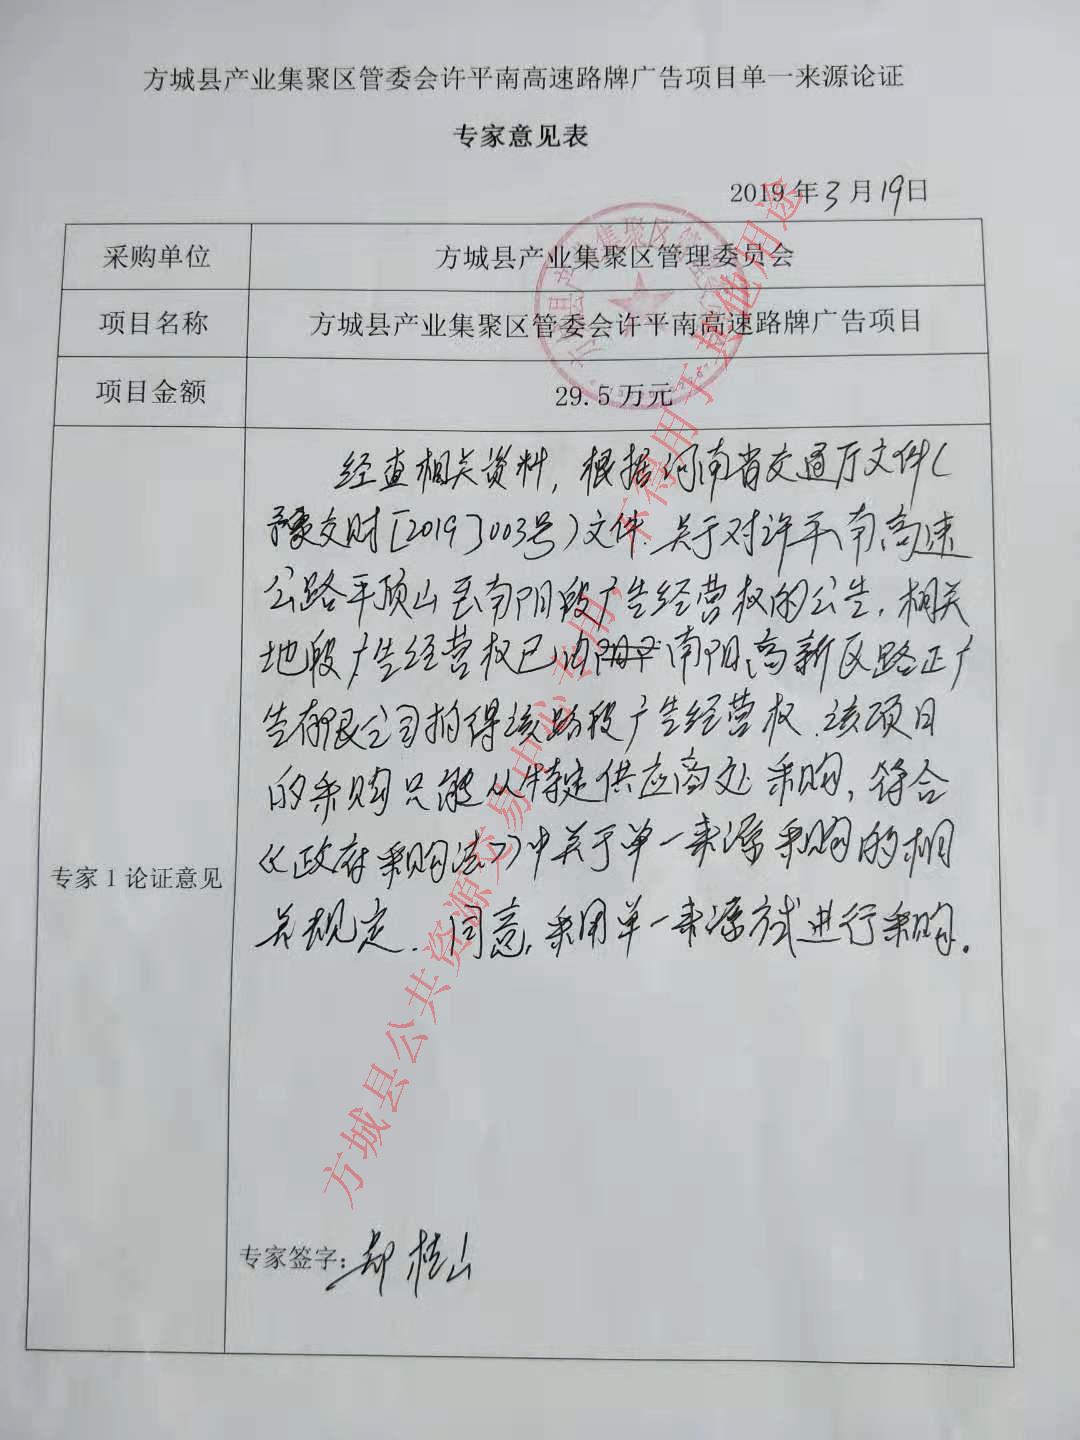 方城县产业集聚区管委会许平南高速路牌广告项目单一来源论证
专家意见表
2019年3月19日
采购单位
方城县产业集聚区管理委员会
项目名称
方城县产业集聚区管委会许平南高速路牌广告项目
项目金额
29.5万元
专家1论证意见
经查相关资料，根据河南省交通厅文件（
豫交财［2019］003号）文件.关于对许平南高速
公路平顶山至南阳段广告经营权的公告，相关
地段广告经营权已由南阳高新区路正广
告有限公司拍得该路段广告经营权.该项目
的采购只能从特定供应商处采购，符合
《政府采购法》中关于单一来源采购的相
关规定.同意，采用单一来源方式进行采购.
专家签字：郑桂山
方城县公共资源交易中心专用，不得用于其他用途